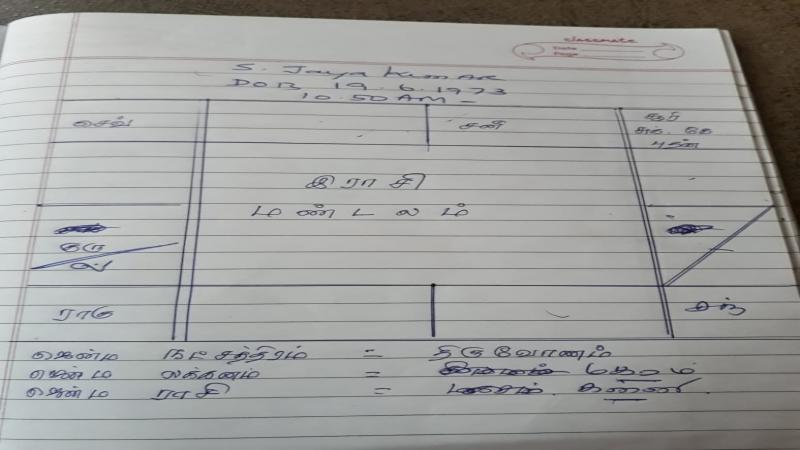 classmate
Date
Page
S. Jaya Kumar
DOB 19.6.1973
10.50 AM -
செவ்
சனி
சூரி
சுக். கே
புதன்
இராசி
மண்டலம்
குரு
ல
ராகு
சந்
ஜென்ம நட்சத்திரம் = திருவோணம்
ஜென்ம லக்கனம் = மகரம்
ஜென்ம ராசி = கன்னி